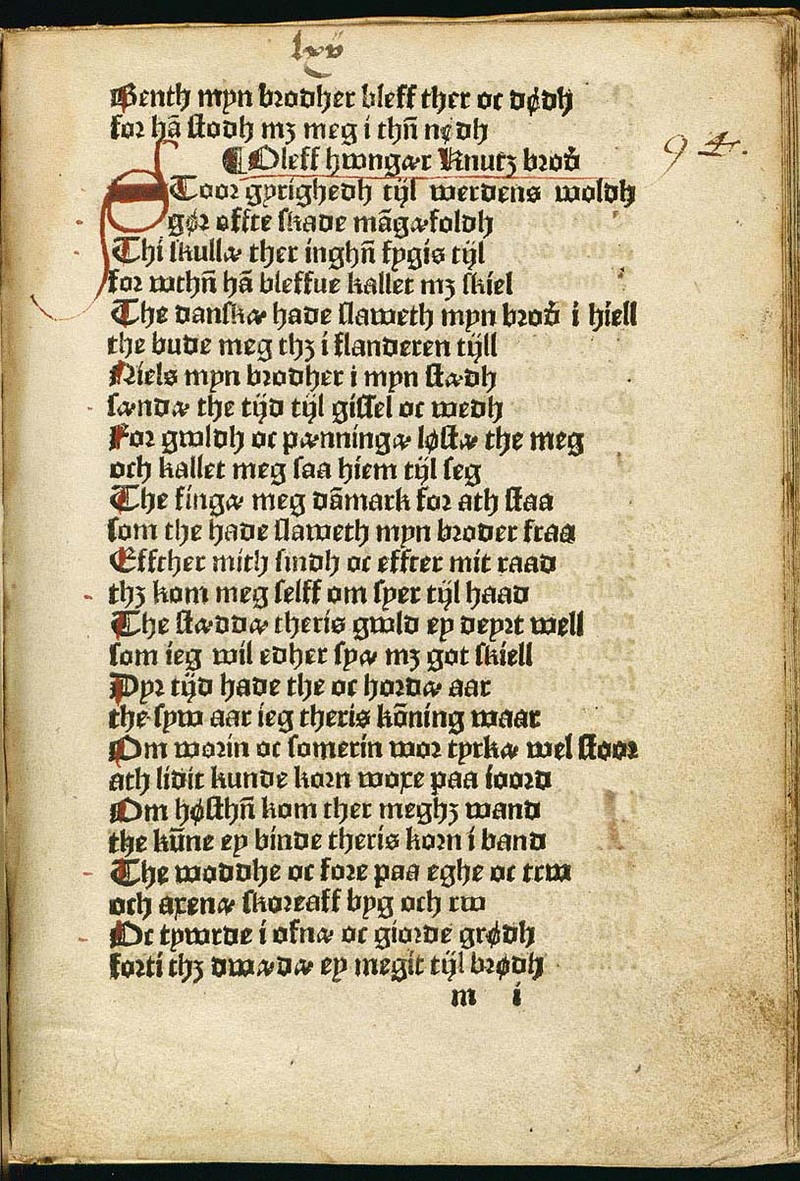 lxv
Benth myn brodher bleff ther oc dødh
for hā stodh mꝫ meg i thn̄ nødh
94.
¶ Oleff hwngær Knutz brod̄
Stoor gyrighedh tijl werdens woldh
gør offte skade māgæfoldh
Thi skullæ ther inghn̄ fygis tijl
for wthn̄ hā bleffue kallet mꝫ skiel
The danskæ hade slaweth myn brod̄ i hiell
the bude meg thꝫ i flanderen tijll
Niels myn brodher i myn stædh
sændæ the tijd tijl gissel oc wedh
For gwldh oc pænningæ løstæ the meg
och kallet meg saa hiem tijl seg
The finge meg dāmark for ath staa
som the hade slaweth myn broder fraa
Effther mith sindh oc effter mit raad
thꝫ kom meg selff om syer tijl haad
The stæddæ theris gwld ey deyrt well
som ieg wil edher syæ mꝫ got skiell
Dyr tijd hade the oc hordæ aar
the syw aar ieg theris kōning waar
Om worin oc somerin wor tyrkæ wel stoor
ath lidit kunde korn woxe paa ioord
Om høsthn̄ kom ther meghꝫ wand
the kūne ey binde theris korn i band
The woddhe oc fore paa eghe oc trw
och axenæ skoreaff byg och rw
Oc tywrde i ofnæ oc giorde grødh
forti thꝫ dwædæ ey megit tijl brødh
m i